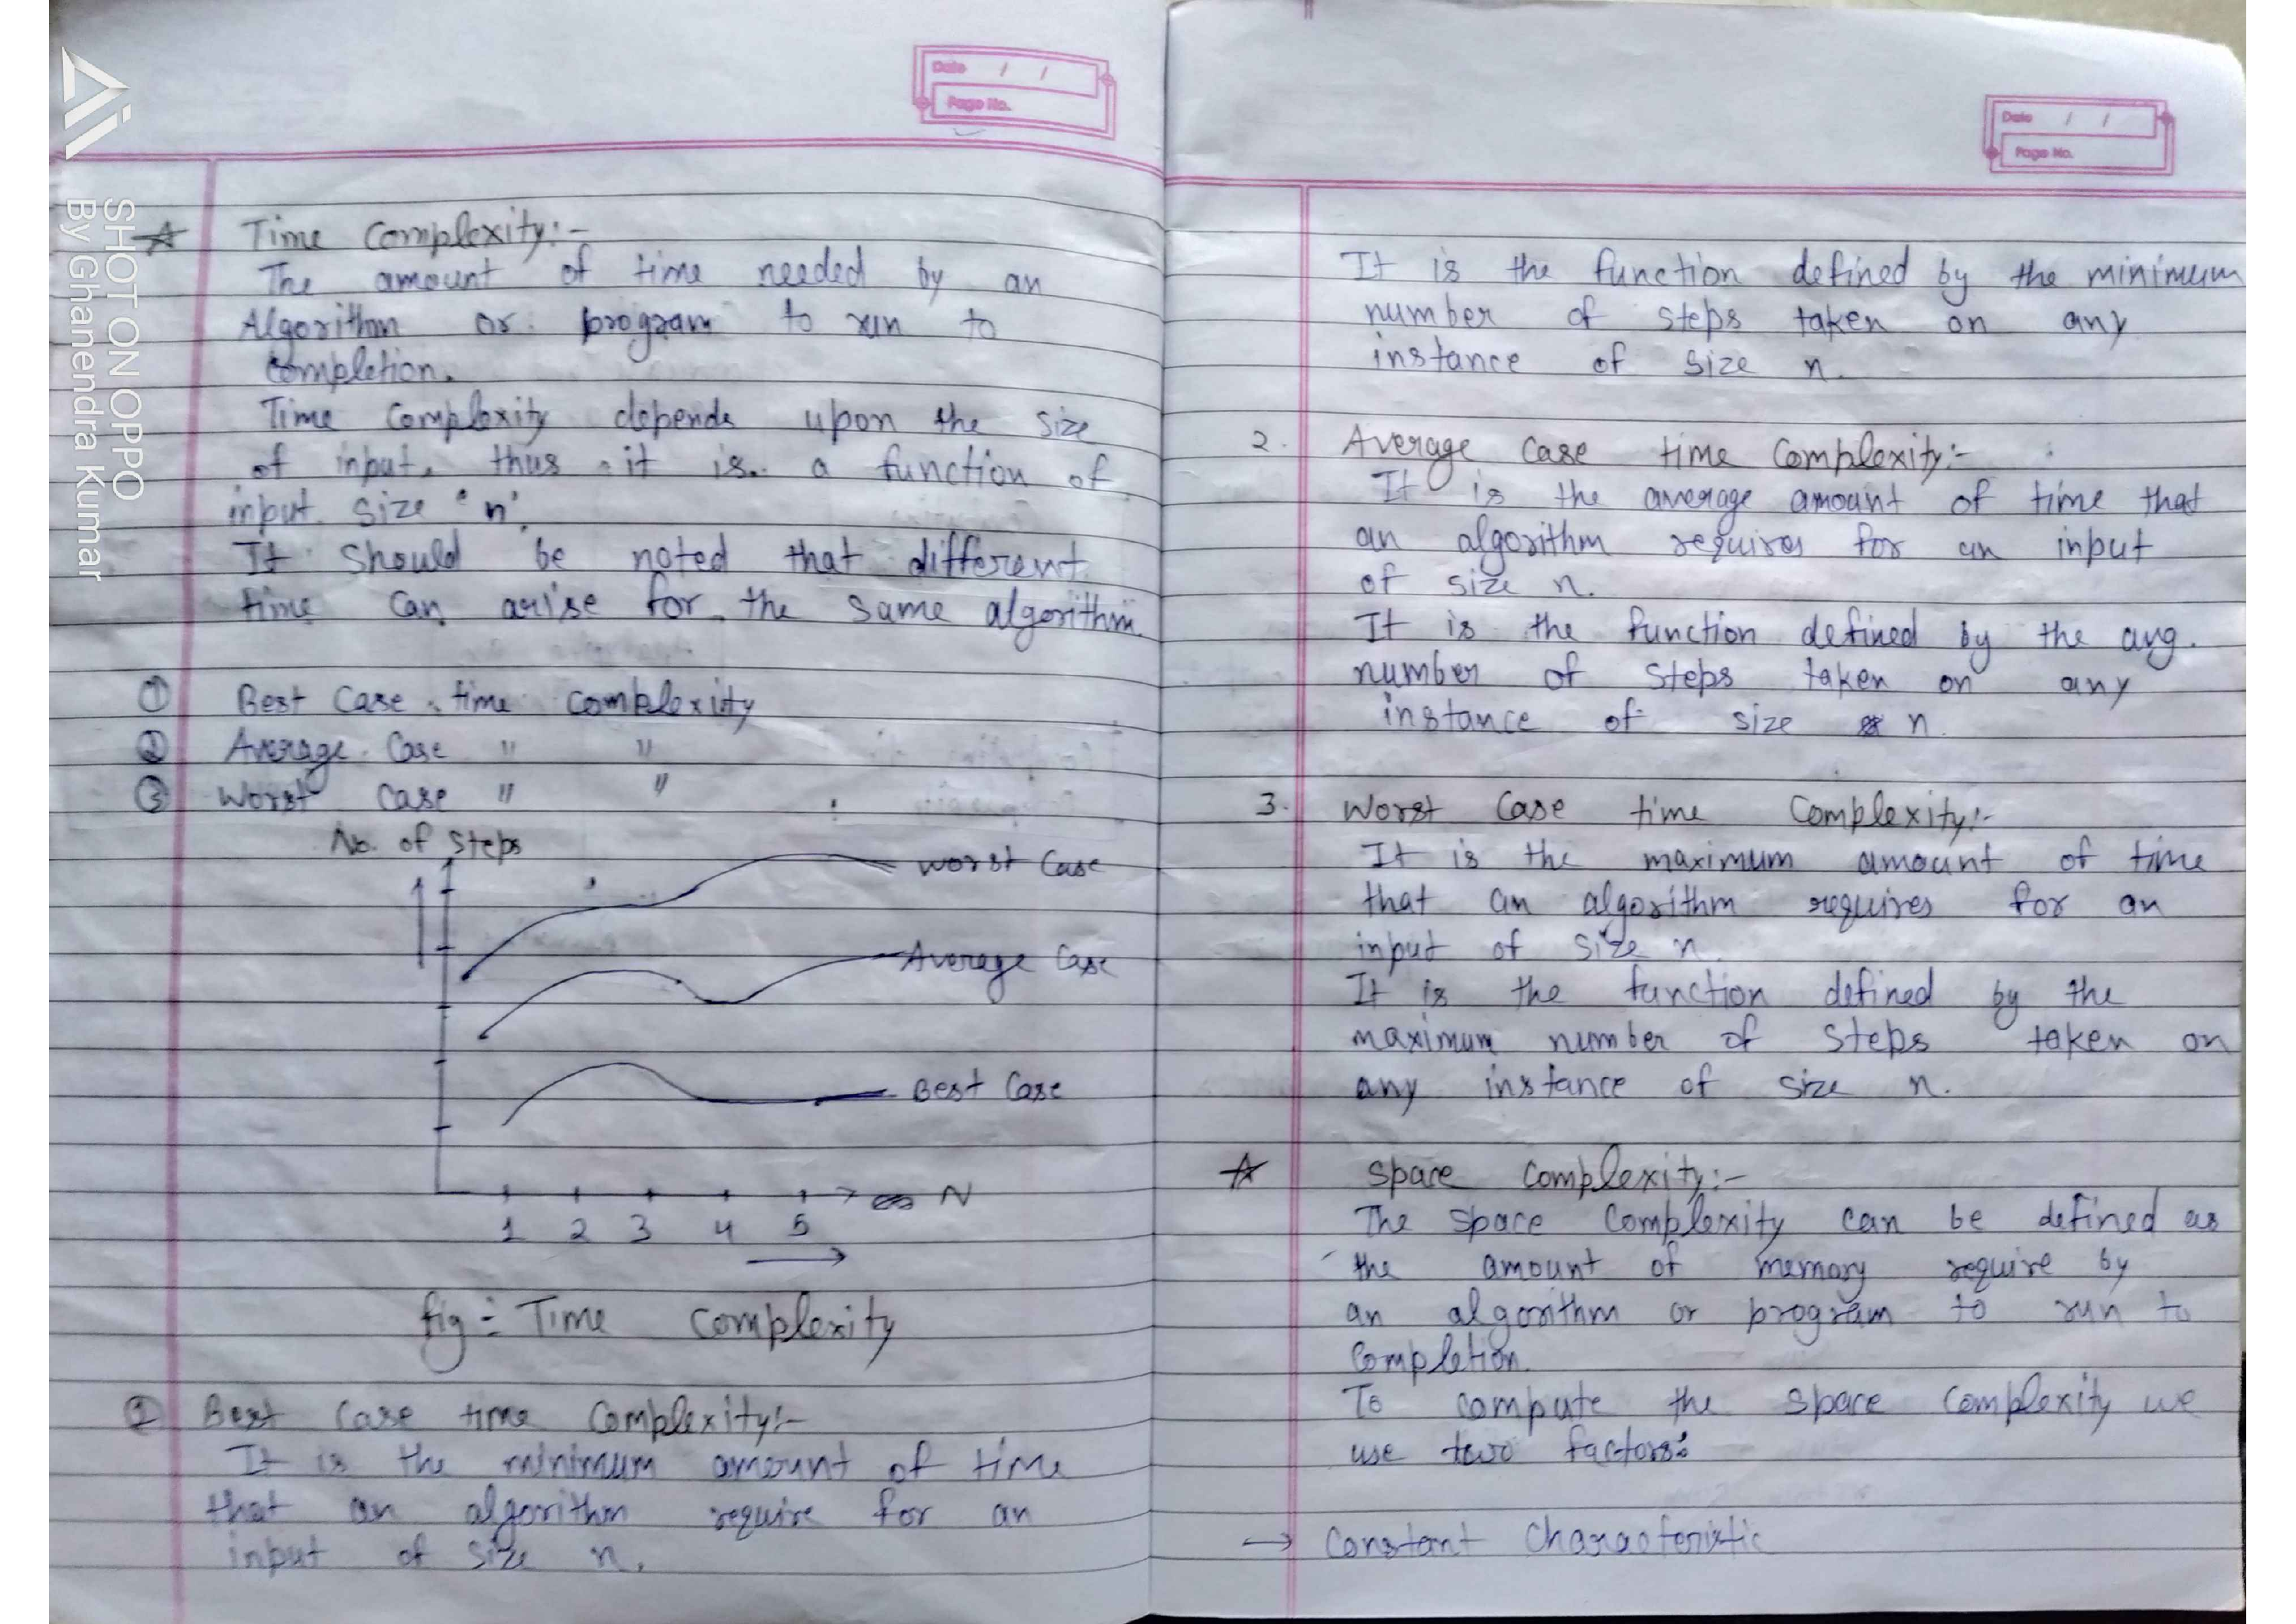 SHOT ON OPPO
By Ghanendra Kumar
Date / /
Page No.
Time Complexity:-
The amount of time needed by an
Algorithm or program to run to
Completion.
Time Complexity depends upon the size
of input, thus it is a function of
input size 'n'.
It should be noted that different
time can arise for the same algorithm.
① Best Case time complexity
② Average Case " "
③ Worst Case " "
No. of Steps
Worst Case
Average Case
Best Case
N
1 2 3 4 5
fig:- Time Complexity
① Best Case time Complexity:-
It is the minimum amount of time
that an algorithm require for an
input of size n.
Date / /
Page No.
It is the function defined by the minimum
number of steps taken on any
instance of size n.
2. Average Case time Complexity:-
It is the average amount of time that
an algorithm requires for an input
of size n.
It is the function defined by the avg.
number of steps taken on any
instance of size n.
3. Worst Case time Complexity:-
It is the maximum amount of time
that an algorithm requires for an
input of size n.
It is the function defined by the
maximum number of steps taken on
any instance of size n.
Space Complexity:-
The Space Complexity can be defined as
the amount of memory require by
an algorithm or program to run to
Completion.
To compute the space complexity we
use two factors:
→ Constant Characteristic